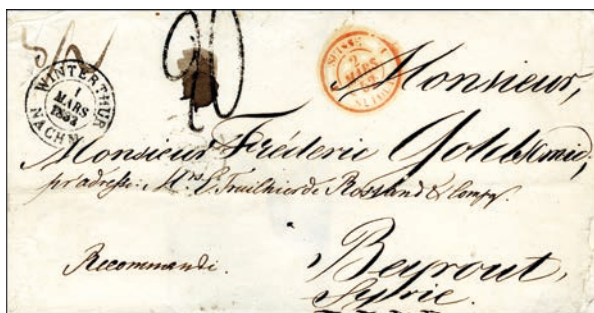 WINTERTHUR
1
MARS
NACHM
20
SUISSE
2
MARS
Monsieur,
Monsieur Fréderic Goldschmid,
pr adresse: Mrs E. Truilhier de Rostand & Compy.
Recommandé.
Beyrout,
Syrie.